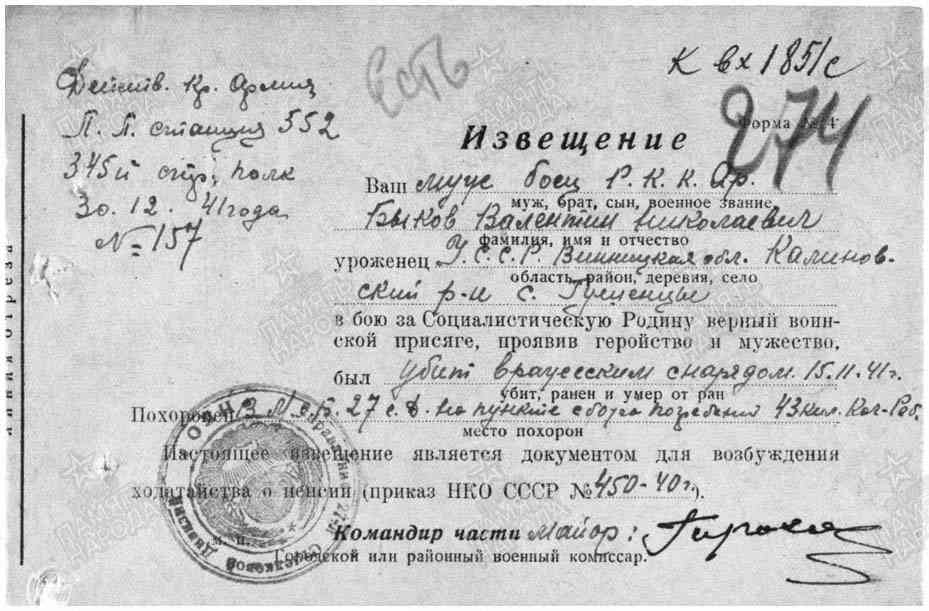 Есть
К вх 1851с
274
Действ. Кр. Армия
П. П. станция 552
345й стр. полк
30. 12. 41 года
№ 157
Форма № 4
Извещение
Ваш муус боец Р. К. К. Ар.
муж, брат, сын, военное звание
Быков Валентин Николаевич
фамилия, имя и отчество
уроженец У.С.С.Р. Винницкая обл. Калинов-
область, район, деревня, село
ский р-н с.
в бою за Социалистическую Родину верный воин-
ской присяге, проявив геройство и мужество,
был убит вражесским снарядом 15.11.41г.
убит, ранен и умер от ран
Похоронен 27 с.д. на пункте сбора 43 кил.
место похорон
Настоящее извещение является документом для возбуждения
ходатайства о пенсии (приказ НКО СССР № 450-40г.).
Командир части майор:
м. п.
Городской или районный военный комиссар.
Линия отреза